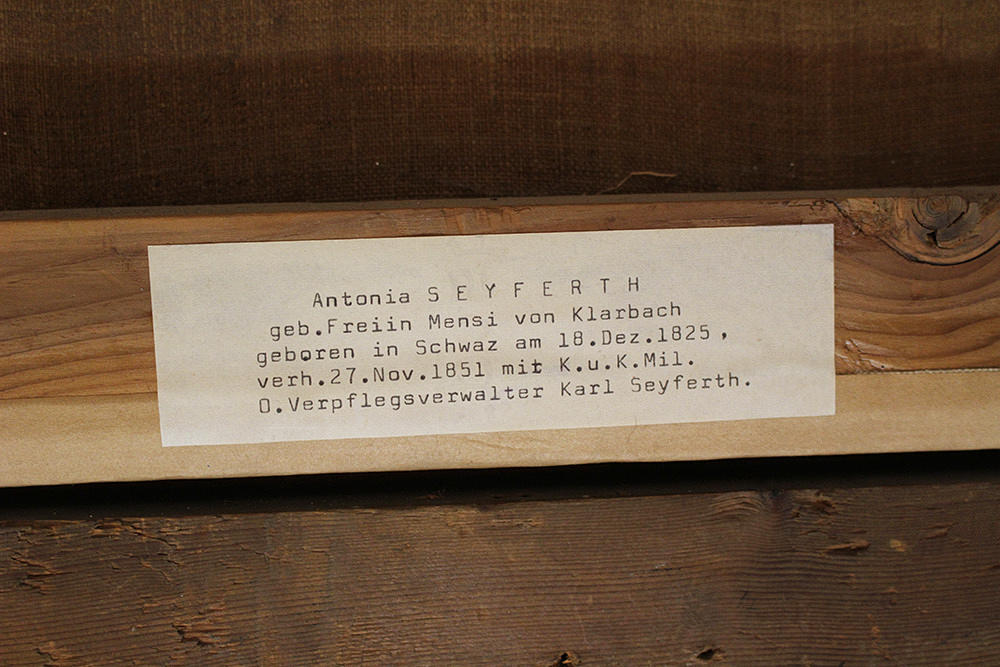 Antonia S E Y F E R T H
geb.Freiin Mensi von Klarbach
geboren in Schwaz am 18.Dez.1825,
verh.27.Nov.1851 mit K.u.K.Mil.
O.Verpflegsverwalter Karl Seyferth.